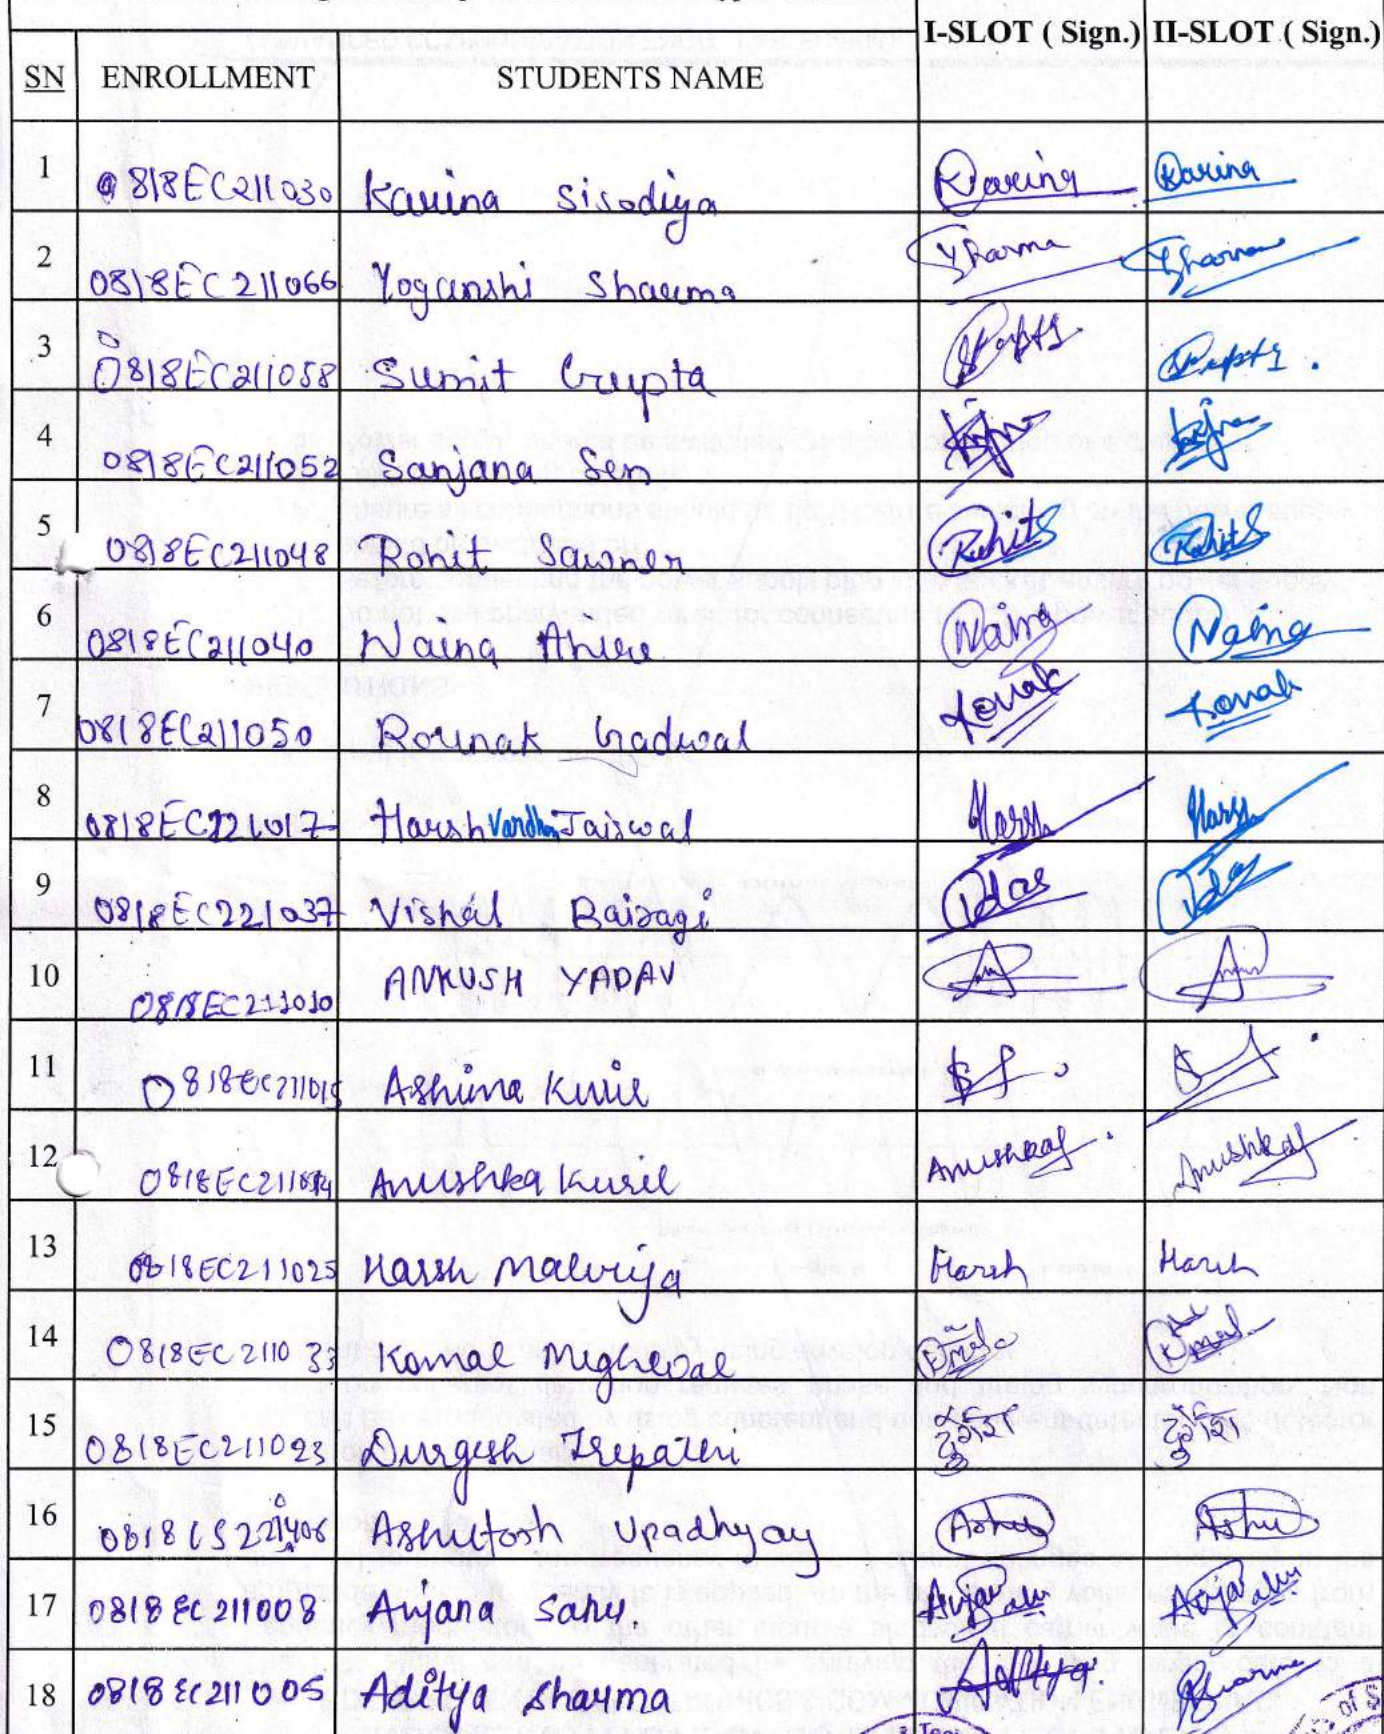 I-SLOT ( Sign.) II-SLOT ( Sign.)
SN ENROLLMENT STUDENTS NAME
1 0818EC211030 Karina Sisodiya Karina Karina
2 0818EC211066 Yoganshi Sharma YSharma YSharma
3 0818EC211058 Sumit Gupta
4 0818EC211052 Sanjana Sen
5 0818EC211048 Rohit Sawner Rohit S Rohit S
6 0818EC211040 Naina Ahire Naina Naina
7 0818EC211050 Rounak Gadwal Ronak Ronak
8 0818EC221017 Harsh Vardhan Jaiswal Harsh Harsh
9 0818EC221037 Vishal Bairagi
10 0818EC211010 ANKUSH YADAV
11 0818EC211015 Ashima Kuril
12 Anushka Kuril Anushka Anushka
13 0818EC211025 Harsh Malviya Harsh Harsh
14 0818EC211033 Komal Meghwal
15 0818EC211023 Durgesh Trepathi
16 Ashutosh Upadhyay Ashu Ashu
17 0818EC211008 Anjana Sahu.
18 0818EC211005 Aditya Sharma Aditya Sharma
of S